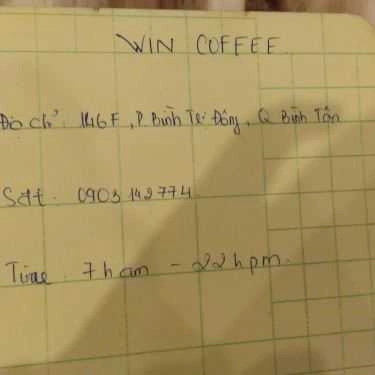 WIN COFFEE
Địa chỉ: 146F, P. Bình Trị Đông, Q Bình Tân
Sđt. 0903 142 774
Time 7h am - 22h pm.